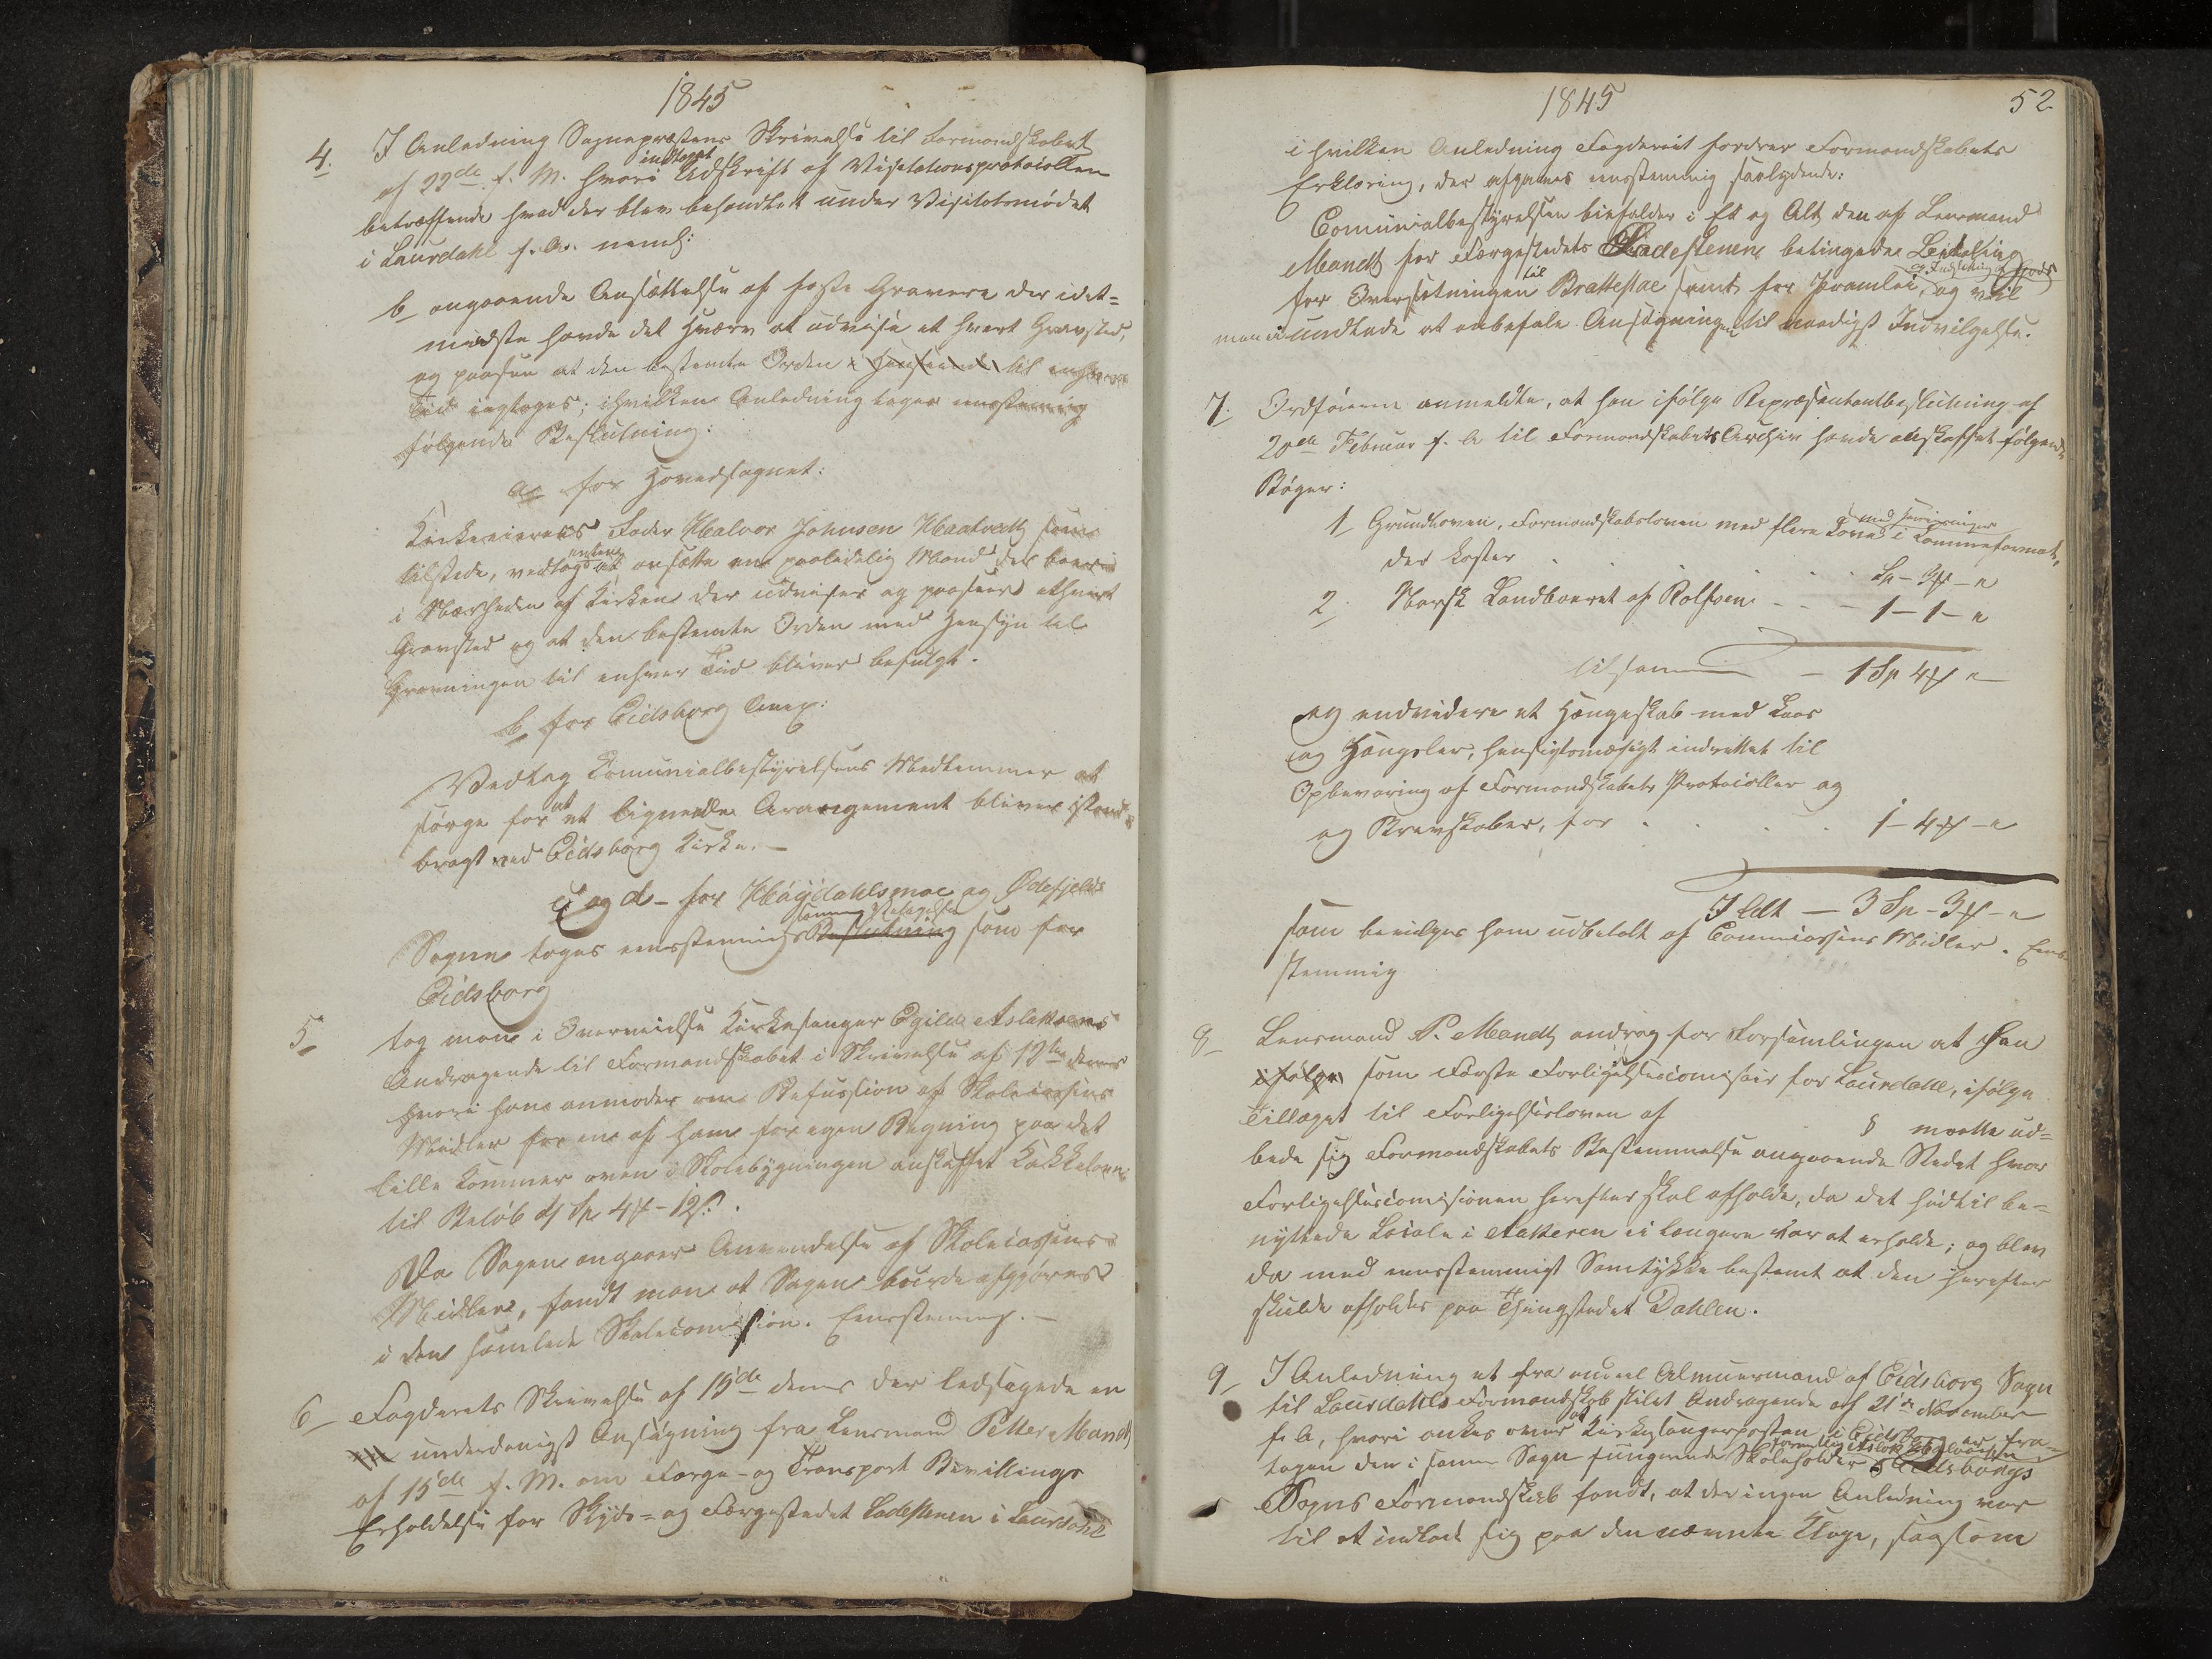 1845
4. I Anledning Sognepræstens Skrivelse til Formandskabet
af 22de f. M. hvori indtaget Udskrift af Visitationsprotocollen
betræffende hvad der blev behandlet under Visitatsmødet
i Laurdahl f. A. neml:
b angaaende Ansættelse af faste Gravere der idet=
mindste havde det Hværv at udvise et hvert Gravsted,
og paasee at den bestemte Orden i Henseende til enhver
Tid iagtages; i hvilken Anledning toges eensstemmig
følgende Beslutning:
a, for Hovedsognet:
Kirkeeierens Fader Halvor Johnsen som
tilstede, vedtog at ansætte en paalidelig Mand der boer
i Nærheden af Kirken der udviser og paaseer ethvert
Gravsted og at den bestemte Orden med Hensyn til
Gravningen til enhver Tid bliver befulgt.
b, for Eidsborg Anex:
Vedtog Comunialbestyrelsens Medlemmer at
sørge for at et lignende Arangement bliver istand=
bragt ved Eidsborg Kirke.—
c og d - for Høydahlsmoe og Ødefjelds
Sogne toges eensstemmig samme Beslutning som for
Eidsborg
5 tog man i Overveielse Kirkesanger Egilde Aslaksens
Andragende til Formandskabet i Skrivelse af 12te dennes
hvori han anmoder om Refussion af Skolecassens
Midler for en af ham for egen Regning paa det
lille Kammer oven i Skolebygningen anskaffet Kakkelovn
til Beløb af Sp. 4 - 12 s.
Da Sagen angaaer Anvendelse af Skolecassens
Midler, fandt man at Sagen burde afgjøres
i den samlede Skolecomission. Eensstemmig.—
6 Fogderets Skrivelse af 15de dennes der ledsagede en
underdanigst Ansøgning fra Lensmand Petter Mandt
af 15de f. M. om Færge- og Transport Bevillings
Erholdelse for Skyds= og Færgestedet Ladestenen i Laurdahl
1845
52
i hvilken Anledning Fogderiet fordrer Formandskabets
Erklæring, der afgaves eensstemmig saalydende:
Comunialbestyrelsen biefalder i Et og Alt den af Lensmand
Mandt for Færgestedets Ladestenens betingede
for Oversætningen til Brattestøe samt for og vil
man ei undlade at anbefale Ansøgningen til naadigst Indvilgelse.
7. Ordføreren anmeldte, at han ifølge Repræsentantbeslutning af
20de Februar f. A til Formandskabets Archiv havde anskaffet følgende
Bøger:
1 Grundloven, Formandskabsloven med flere Love i Lommeformat,
der koster . . . . Sp - 3 - "
2. Norsk Landboeret af Rolfsen - - - 1 - 1 - "
tilsammen — 1 Sp 4 "
og endvidere et Hængeskab med Laas
og Hængsler, hensigtsmæsigt indrettet til
Opbevaring af Formandskabets Protocoller og
og Brevskaber, for . . . . 1 - 4 - "
I Alt — 3 Sp - 3 - "
som bevilges ham udbetalt af Communecassens Midler. Eens
stemmig
8 Lensmand P. Mandt androg for Forsamlingen at han
ifølge som Første Forligelsescomisair for Laurdahl, ifølge
Tillæget til Forligelsesloven af § maatte ud=
bede sig Formandskabets Bestemmelse angaaende Stedet hvor
Forligelsescomisionen herefter skal afholdes, da det hidtil be=
nyttede Locale i Aakeren ei længere var at erholde; og blev
da med eensstemmigt Samtykke bestemt at den herefter
skulde afholdes paa Thingstedet Dahlen.
9 I Anledning et fra endeel Almuesmænd af Eidsborg Sogn
til Laurdahls Formandskab stilet Andragende af 21de November
f. A, hvori ankes over at Kirkesangerposten i Eidsborg er fra=
tagen den i samme Sogn fungerende Skoleholder Eidsborgs
Sogns Formandskab fandt, at der ingen Anledning var
til at indlade sig paa den nævnte Klage, saasom